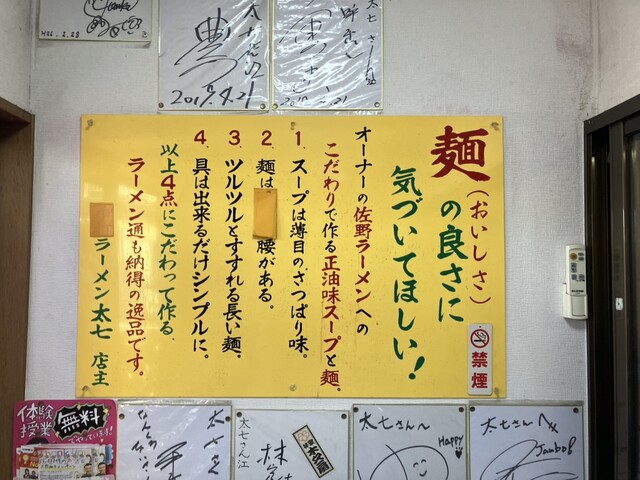 H26.2.28
太七さん江
2017.4.21
太七さん江
麺(おいしさ)の良さに
気づいてほしい!
オーナーの佐野ラーメンへの
こだわりで作る正油味スープと麺。
1. スープは薄目のさっぱり味。
2. 麺は
腰がある。
3. ツルツルとすすれる長い麺。
4. 具は出来るだけシンプルに。
以上4点にこだわって作る.
ラーメン通も納得の逸品です。
ラーメン太七 店主
禁煙
体験
授業
無料
太七さん
太七さん江
太七さんへ
Happy
太七さんへ